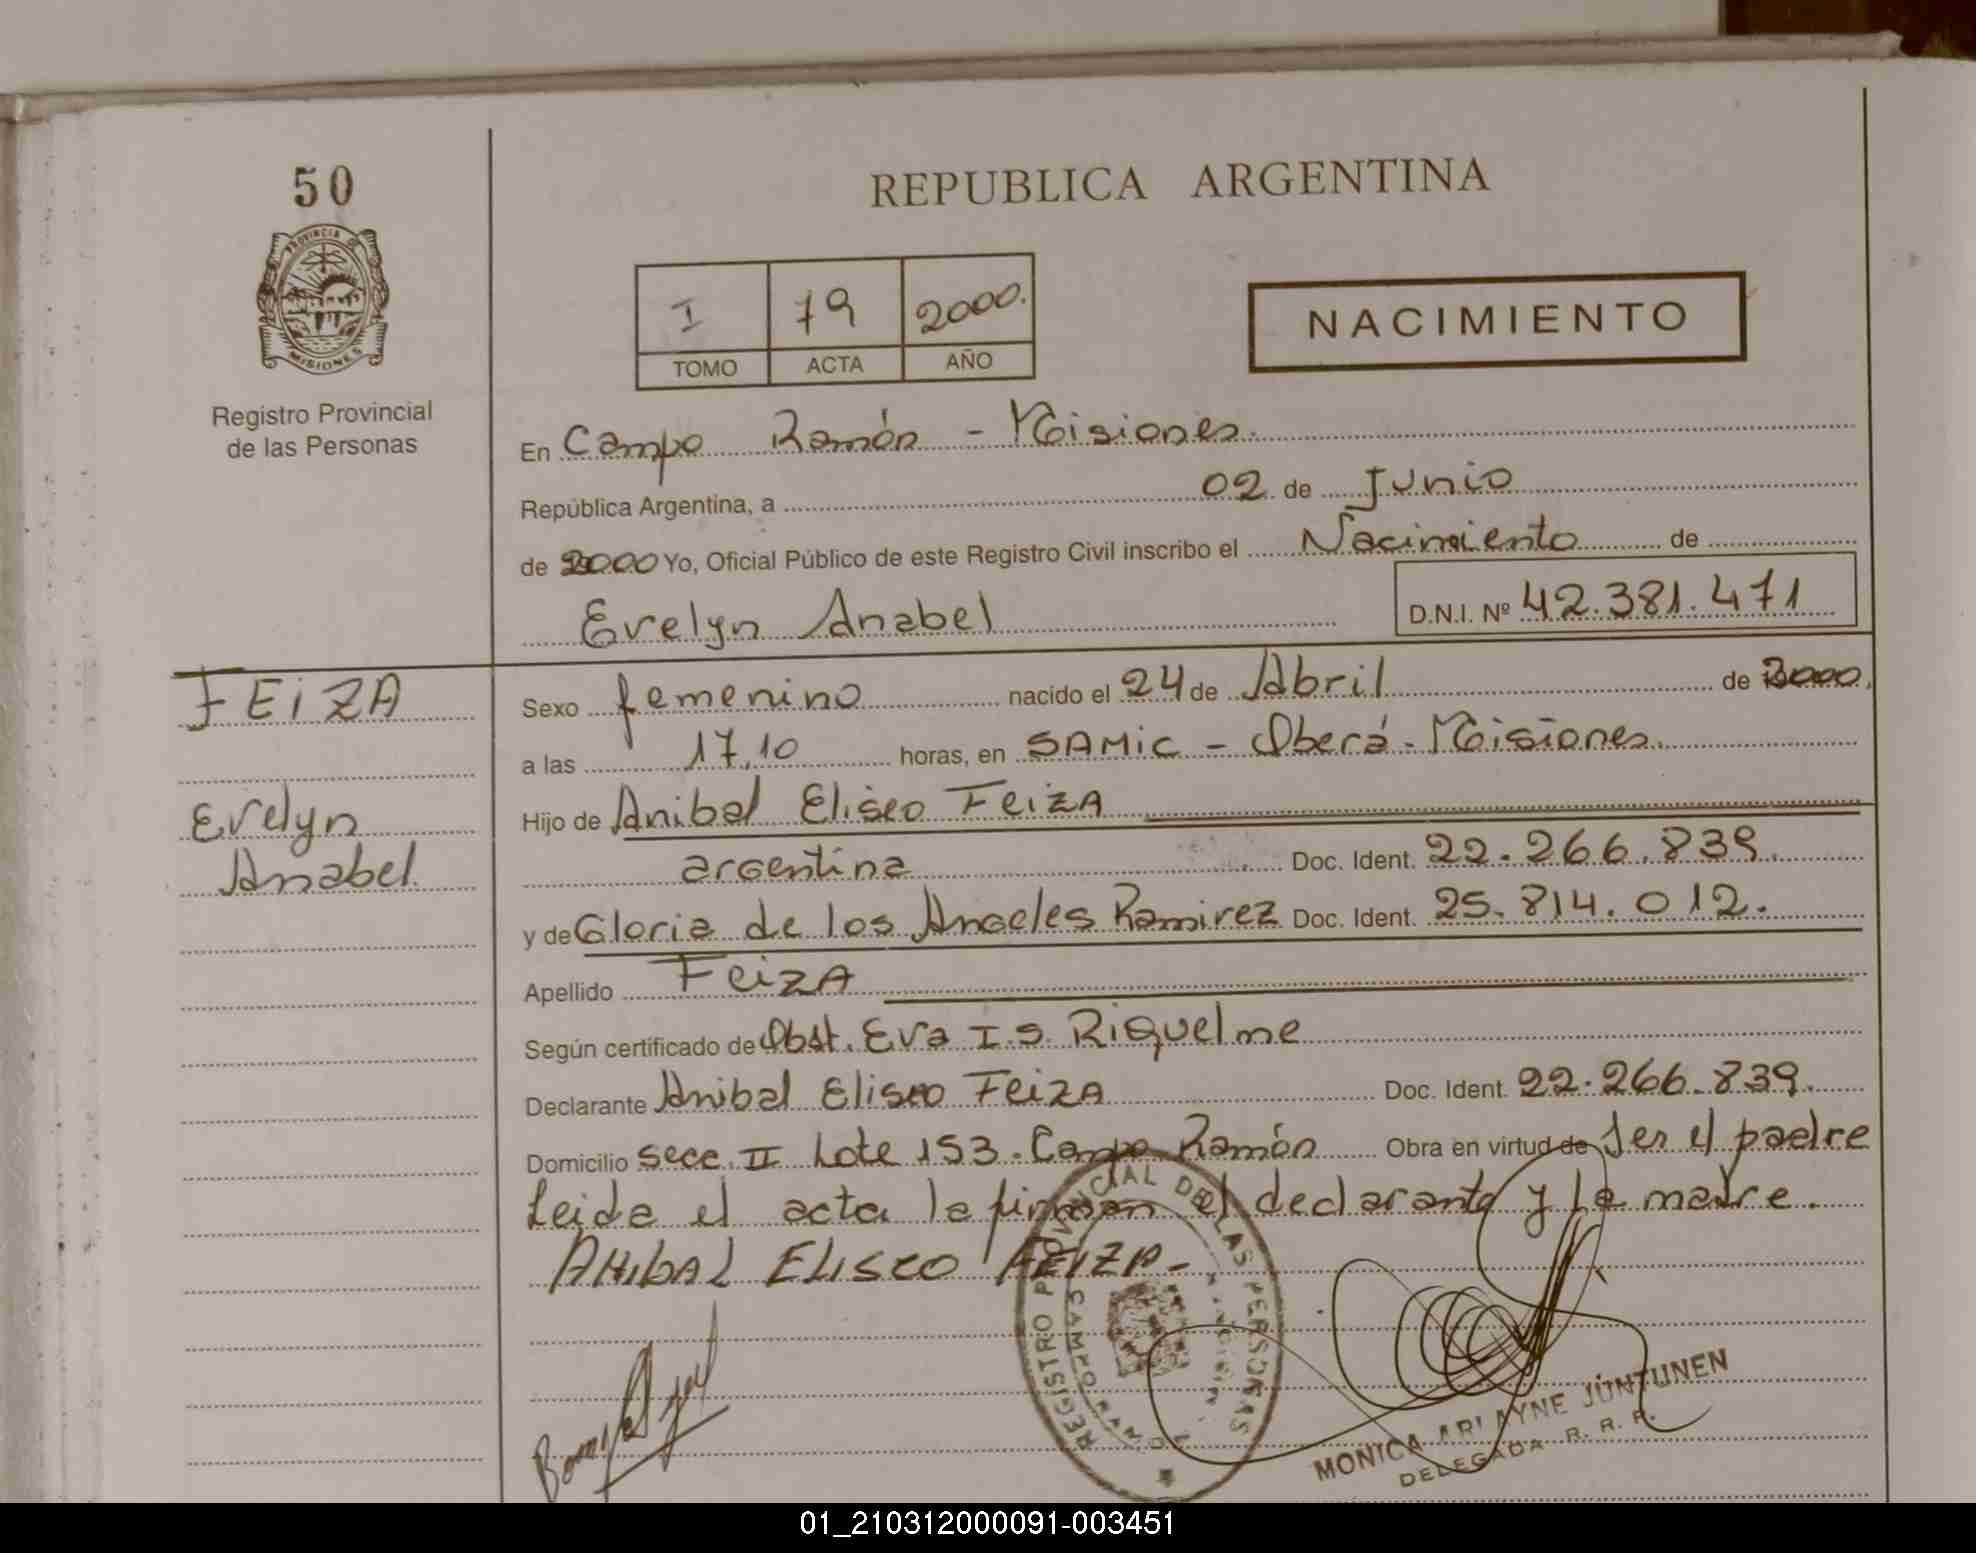 50
PROVINCIA DE
MISIONES
Registro Provincial
de las Personas
REPUBLICA ARGENTINA
I 79 2000.
TOMO ACTA AÑO
NACIMIENTO
En Campo Ramón - Misiones.
República Argentina, a 02 de Junio
de 2000 Yo, Oficial Público de este Registro Civil inscribo el Nacimiento de
Evelyn Anabel D.N.I. Nº 42.381.471
FEIZA
Evelyn
Anabel.
Sexo femenino nacido el 24 de Abril de 2000.
a las 17,10 horas, en SAMIC - Oberá - Misiones.
Hijo de Anibal Eliseo FEIZA
argentina Doc. Ident. 22.266.839.
y de Gloria de los Angeles Ramirez Doc. Ident. 25.814.012.
Apellido FEIZA
Según certificado de Obst. Eva I.S. Riquelme
Declarante Anibal Eliseo FEIZA Doc. Ident. 22.266.839.
Domicilio Secc. II Lote 153. Campo Ramón Obra en virtud de Ser el padre
Leida el acta la firman el declarante y la madre.
ANIBAL ELISEO FEIZA-
REGISTRO PROVINCIAL DE LAS PERSONAS
CAMPO RAMON
MONICA ARLAYNE JUNTUNEN
DELEGADA R. R. P.
01_210312000091-003451